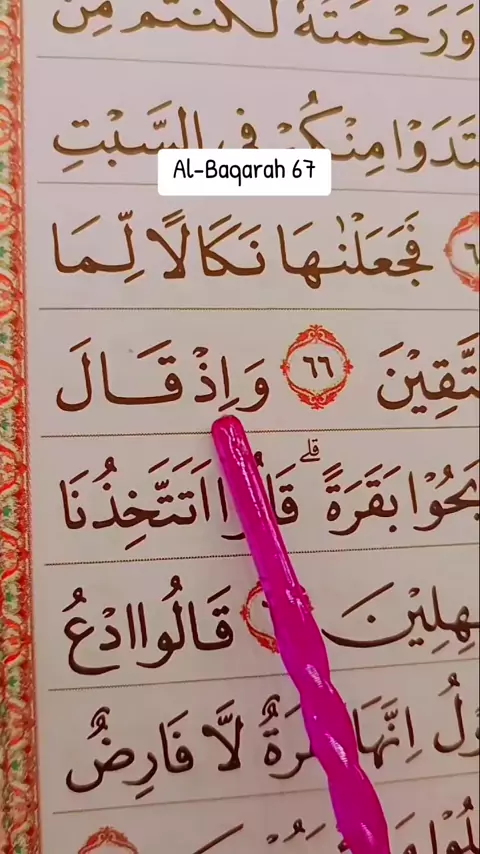 وَرَحْمَتُهٗ لَكُنْتُمْ مِّنَ
تَدَوْا مِنْكُمْ فِى السَّبْتِ
Al-Baqarah 67
فَجَعَلْنٰهَا نَكَالًا لِّمَا
تَّقِيْنَ ٦٦ وَاِذْ قَالَ
بَحُوْا بَقَرَةً ۗ اَتَتَّخِذُنَا
هِلِيْنَ قَالُوا ادْعُ
وْلُ اِنَّهَا لَّا فَارِضٌ